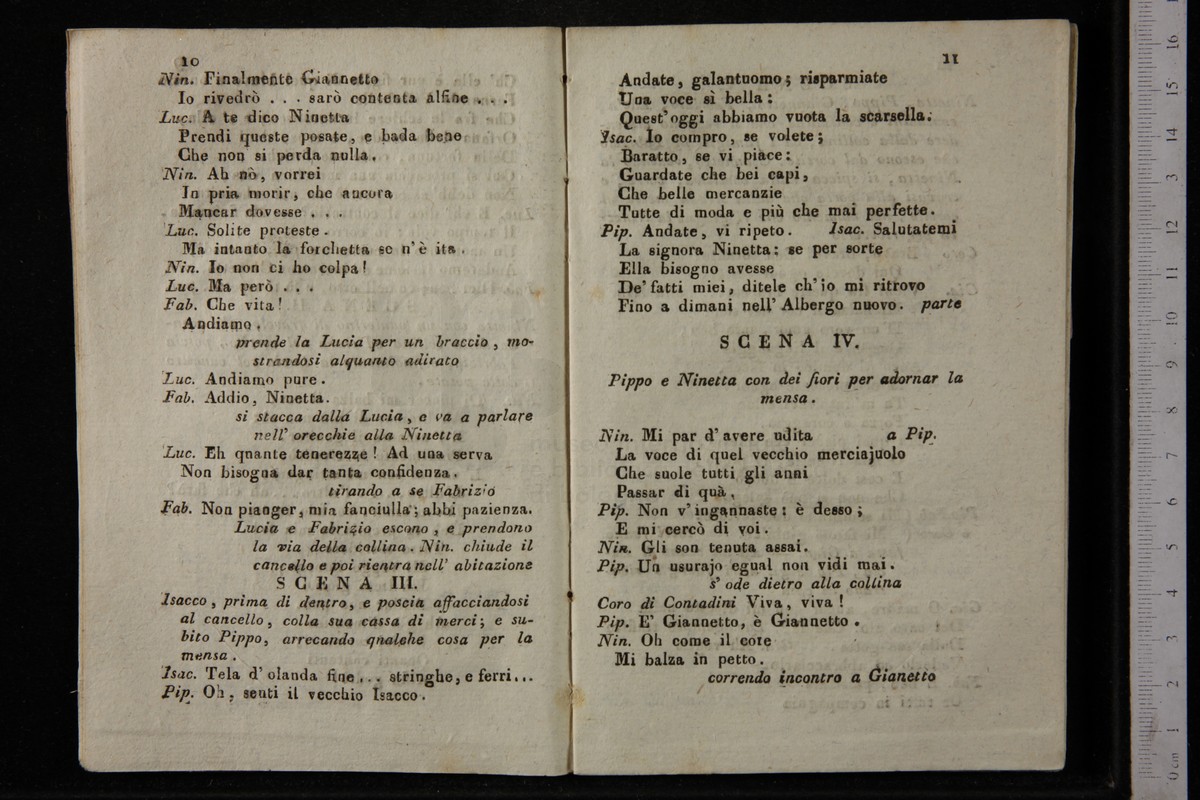 10
Nin. Finalmente Giannetto
Io rivedrò . . . sarò contenta alfine . . .
Luc. A te dico Ninetta
Prendi queste posate, e bada bene
Che non si perda nulla.
Nin. Ah nò, vorrei
In pria morir, che ancora
Mancar dovesse . . .
Luc. Solite proteste.
Ma intanto la forchetta se n'è ita.
Nin. Io non ci ho colpa!
Luc. Ma però . . .
Fab. Che vita!
Andiamo.
prende la Lucia per un braccio, mo-
strandosi alquanto adirato
Luc. Andiamo pure.
Fab. Addio, Ninetta.
si stacca dalla Lucia, e va a parlare
nell' orecchie alla Ninetta
Luc. Eh qnante tenerezze! Ad una serva
Non bisogna dar tanta confidenza.
tirando a se Fabrizio
Fab. Non pianger, mia fanciulla; abbi pazienza.
Lucia e Fabrizio escono, e prendono
la via della collina. Nin. chiude il
cancello e poi rientra nell' abitazione
SCENA III.
Isacco, prima di dentro, e poscia affacciandosi
al cancello, colla sua cassa di merci; e su-
bito Pippo, arrecando qnalche cosa per la
mensa.
Isac. Tela d' olanda fine... stringhe, e ferri...
Pip. Oh, senti il vecchio Isacco.
11
Andate, galantuomo; risparmiate
Una voce sì bella:
Quest'oggi abbiamo vuota la scarsella.
Isac. Io compro, se volete;
Baratto, se vi piace:
Guardate che bei capi,
Che belle mercanzie
Tutte di moda e più che mai perfette.
Pip. Andate, vi ripeto. Isac. Salutatemi
La signora Ninetta: se per sorte
Ella bisogno avesse
De' fatti miei, ditele ch'io mi ritrovo
Fino a dimani nell' Albergo nuovo. parte
SCENA IV.
Pippo e Ninetta con dei fiori per adornar la
mensa.
Nin. Mi par d'avere udita a Pip.
La voce di quel vecchio merciajuolo
Che suole tutti gli anni
Passar di quà,
Pip. Non v'ingannaste: è desso;
E mi cercò di voi.
Nin. Gli son tenuta assai.
Pip. Un usurajo egual non vidi mai.
s' ode dietro alla collina
Coro di Contadini Viva, viva!
Pip. E' Giannetto, è Giannetto.
Nin. Oh come il core
Mi balza in petto.
correndo incontro a Gianetto
0 cm 1 2 3 4 5 6 7 8 9 10 11 12 13 14 15 16